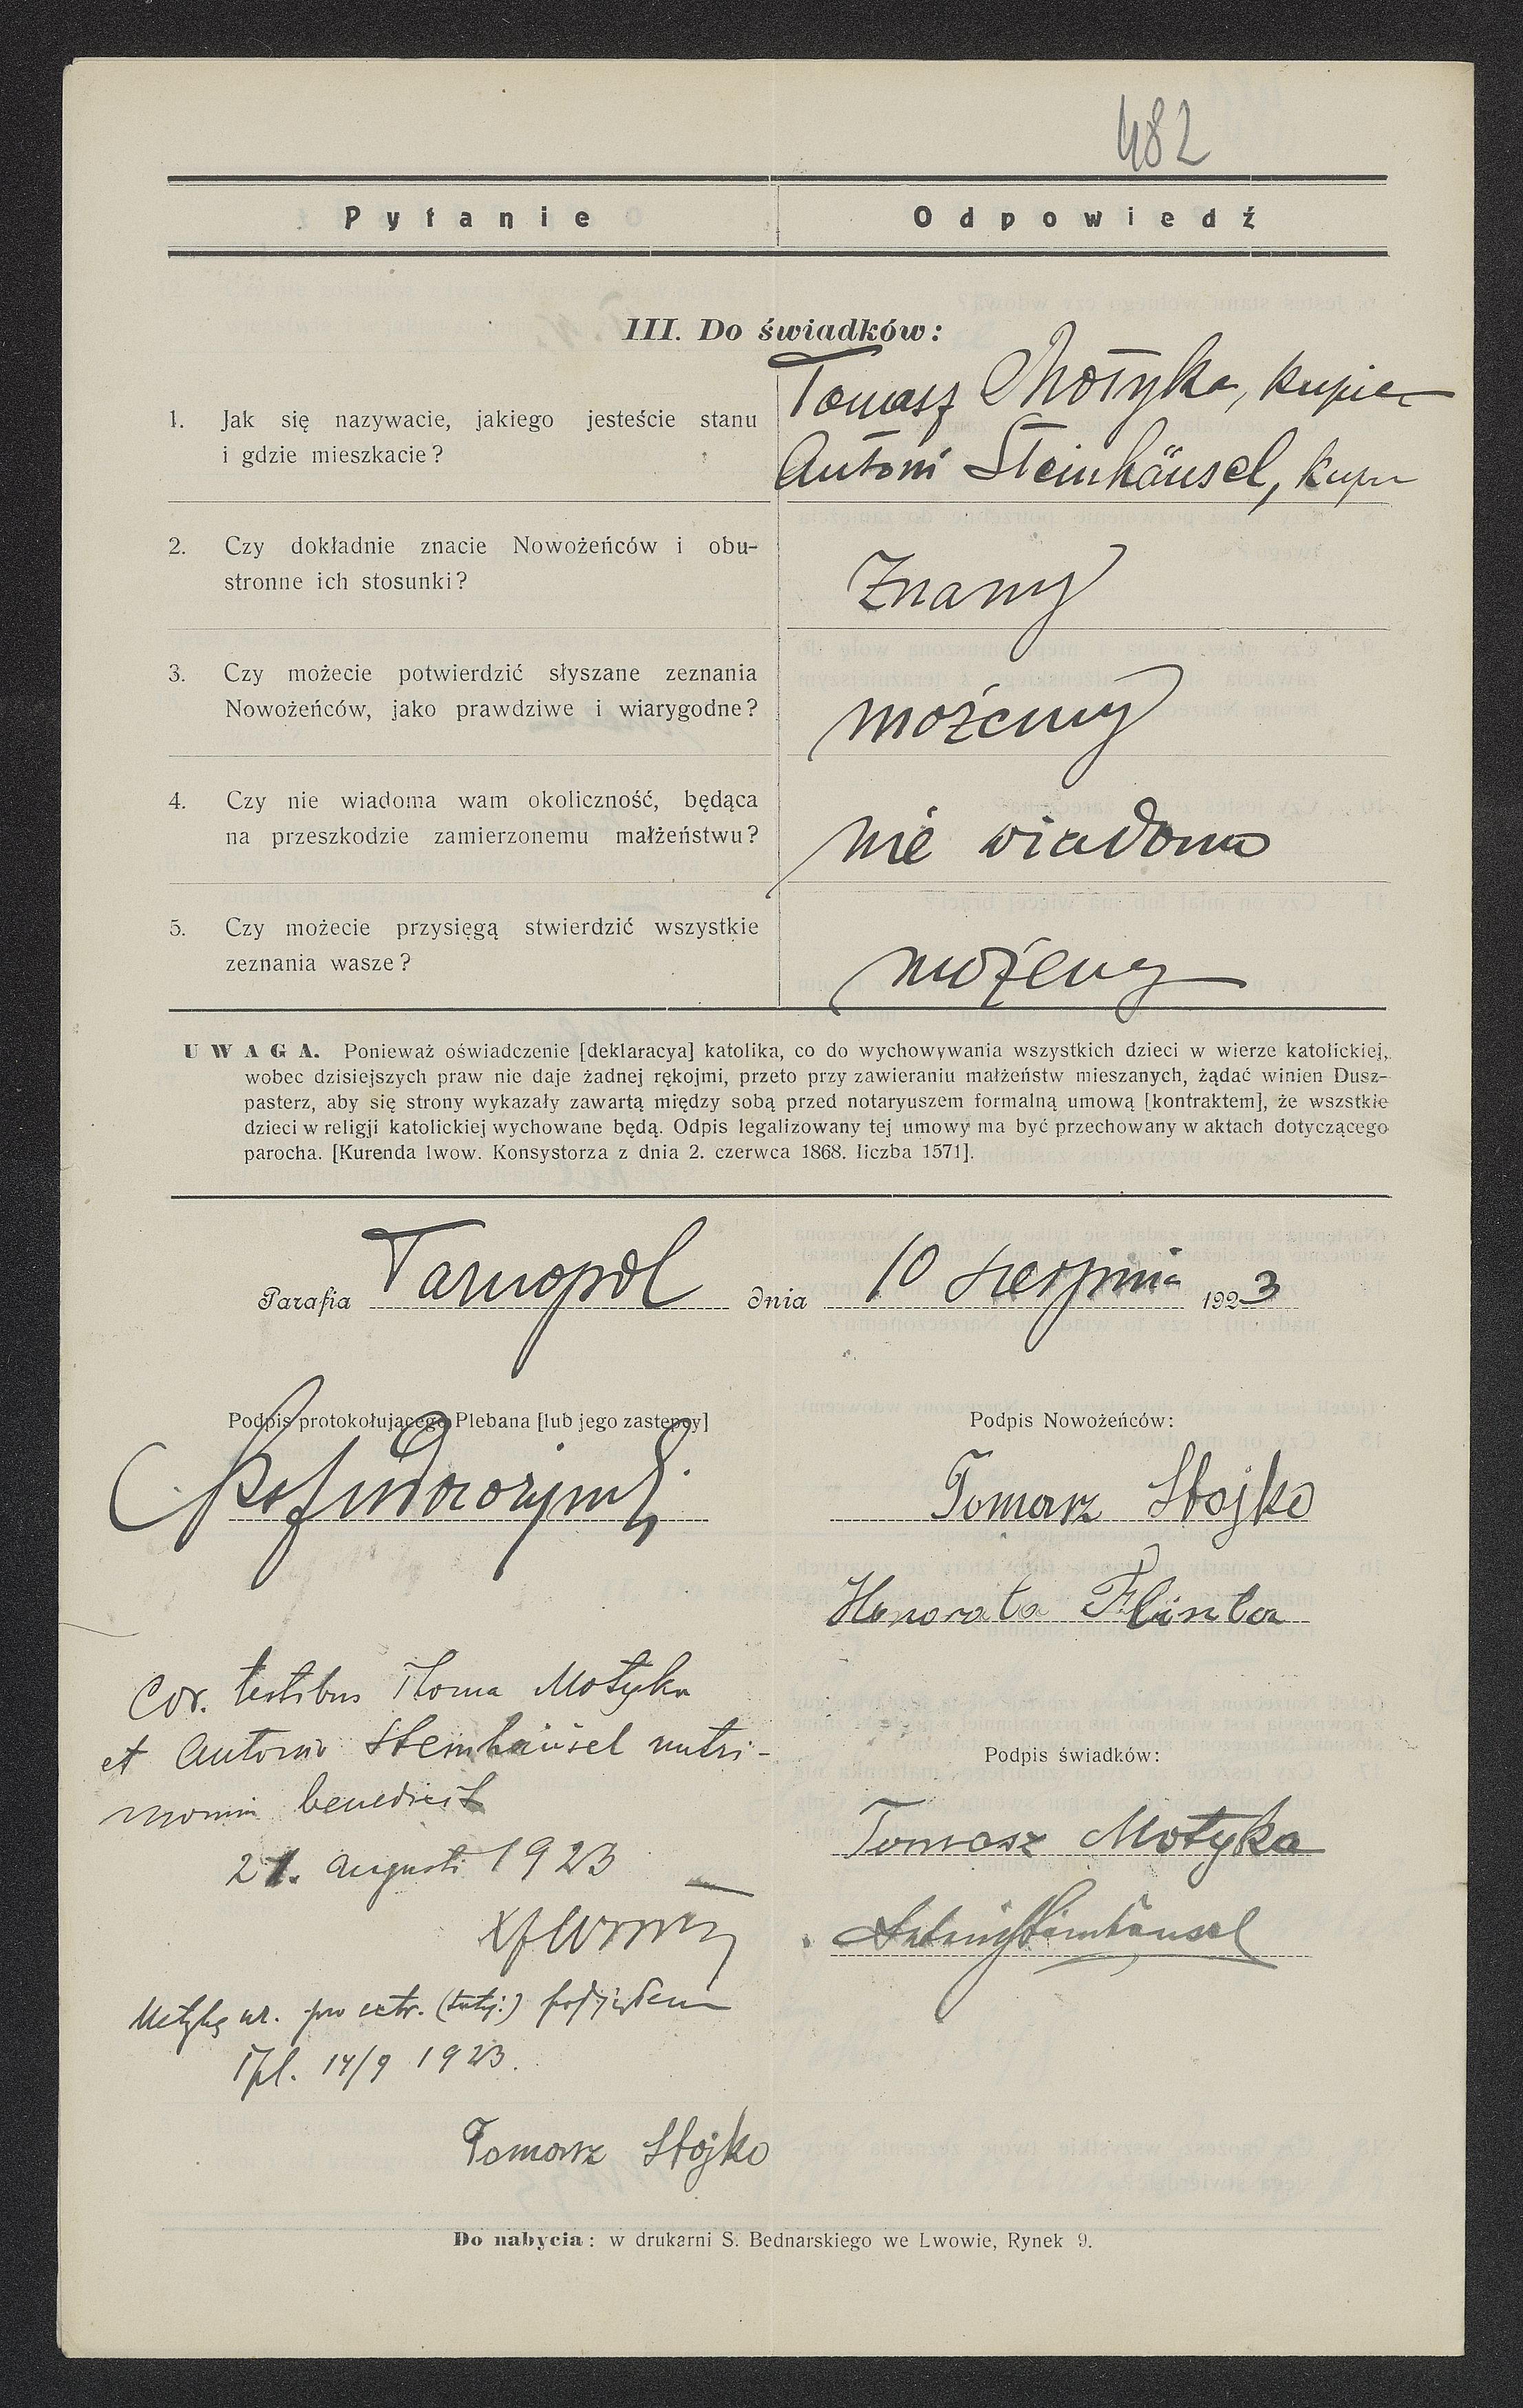 482
Pytanie Odpowiedź
III. Do świadków:
1. Jak się nazywacie, jakiego jesteście stanu
i gdzie mieszkacie?
Tomasz Motyka, kupiec
Antoni Steinhäusel, kupiec
2. Czy dokładnie znacie Nowożeńców i obu-
stronne ich stosunki?
Znamy
3. Czy możecie potwierdzić słyszane zeznania
Nowożeńców, jako prawdziwe i wiarygodne?
możemy
4. Czy nie wiadoma wam okoliczność, będąca
na przeszkodzie zamierzonemu małżeństwu?
nie wiadoma
5. Czy możecie przysięgą stwierdzić wszystkie
zeznania wasze?
możemy
UWAGA. Ponieważ oświadczenie [deklaracya] katolika, co do wychowywania wszystkich dzieci w wierze katolickiej,
wobec dzisiejszych praw nie daje żadnej rękojmi, przeto przy zawieraniu małżeństw mieszanych, żądać winien Dusz-
pasterz, aby się strony wykazały zawartą między sobą przed notaryuszem formalną umową [kontraktem], że wszstkie
dzieci w religji katolickiej wychowane będą. Odpis legalizowany tej umowy ma być przechowany w aktach dotyczącego
parocha. [Kurenda lwow. Konsystorza z dnia 2. czerwca 1868. liczba 1571].
Parafia Tarnopol dnia 10 sierpnia 1923
Podpis protokołującego Plebana [lub jego zastępcy]
Podpis Nowożeńców:
Tomasz Stojko
Honorata Flinta
Cor. testibus Thoma Motyka
et Antonio Steinhäusel matri-
monium benedixit
21. Augusti 1923
Podpis świadków:
Tomasz Motyka
Antoni Steinhäusel
Metykę ur. pro extr. (tutj:)
Tpl. 14/9 1923.
Tomasz Stojko
Do nabycia: w drukarni S. Bednarskiego we Lwowie, Rynek 9.